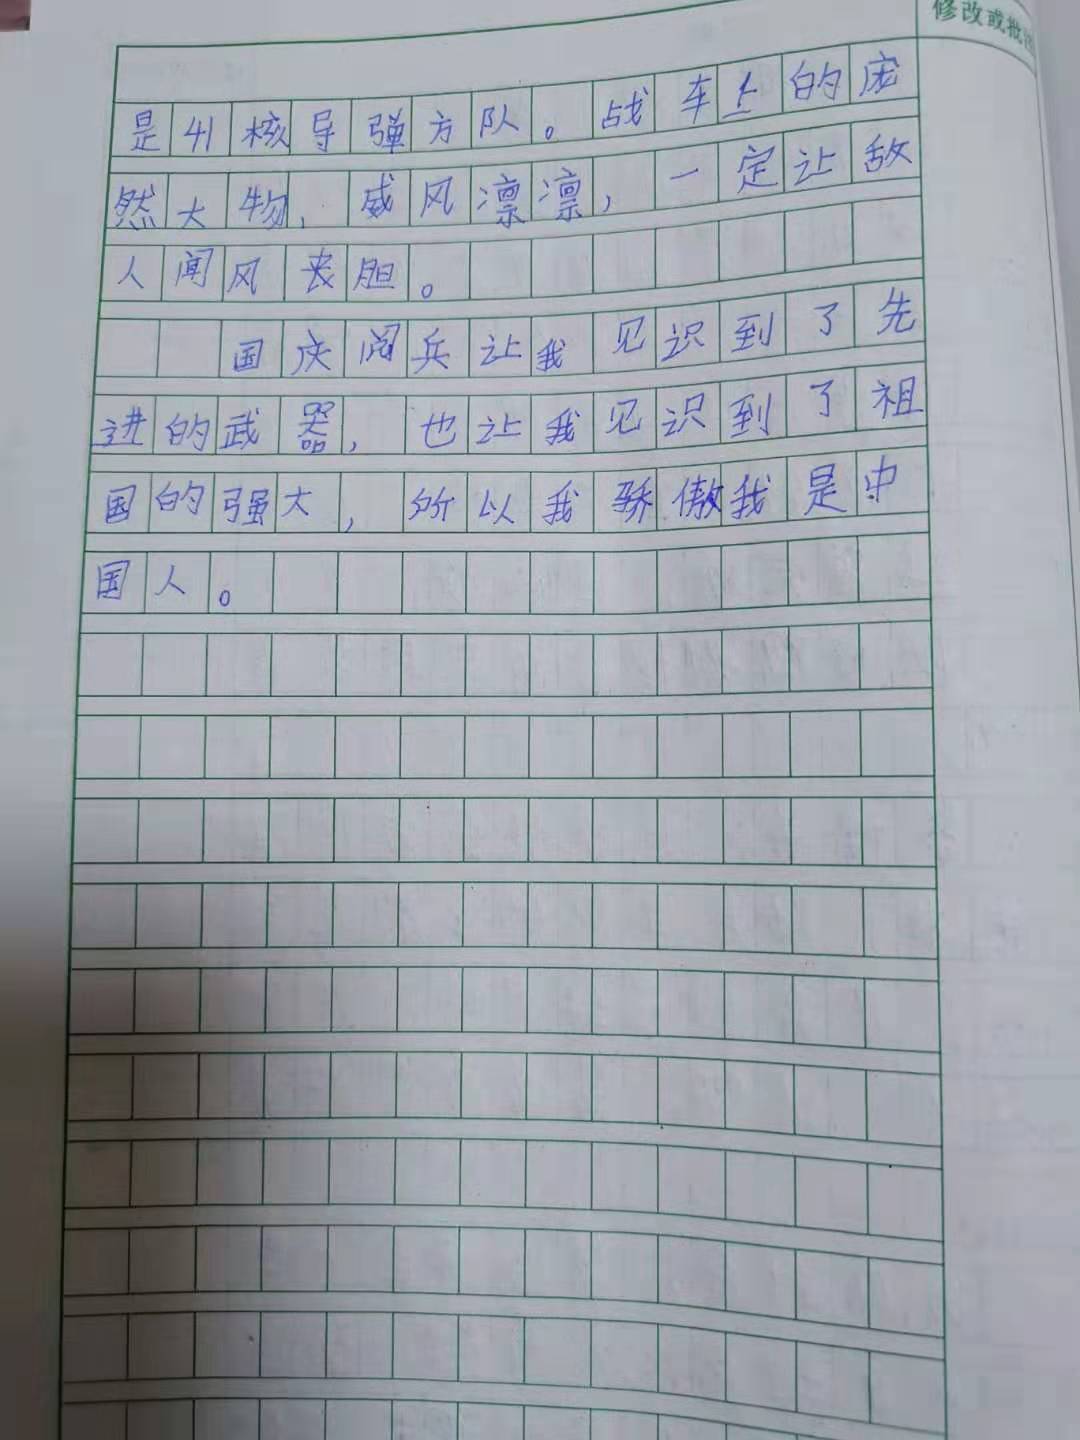 修改或批
是41核导弹方队。战车上的庞
然大物，威风凛凛，一定让敌
人闻风丧胆。
国庆阅兵让我见识到了先
进的武器，也让我见识到了祖
国的强大，所以我骄傲我是中
国人。